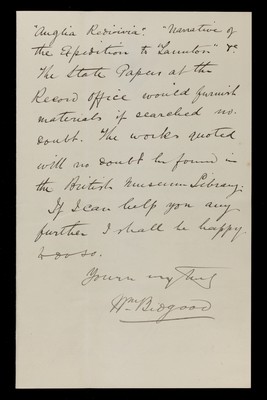 "Anglia Rediviva". "Narrative of
the Expedition to Taunton" &c.
The State Papers at the
Record office would furnish
materials if searched no
doubt. The works quoted
will no doubt be found in
the British Museum Library.
If I can help you any
further I shall be happy
to do so.
Yours very truly
Wm Bidgood